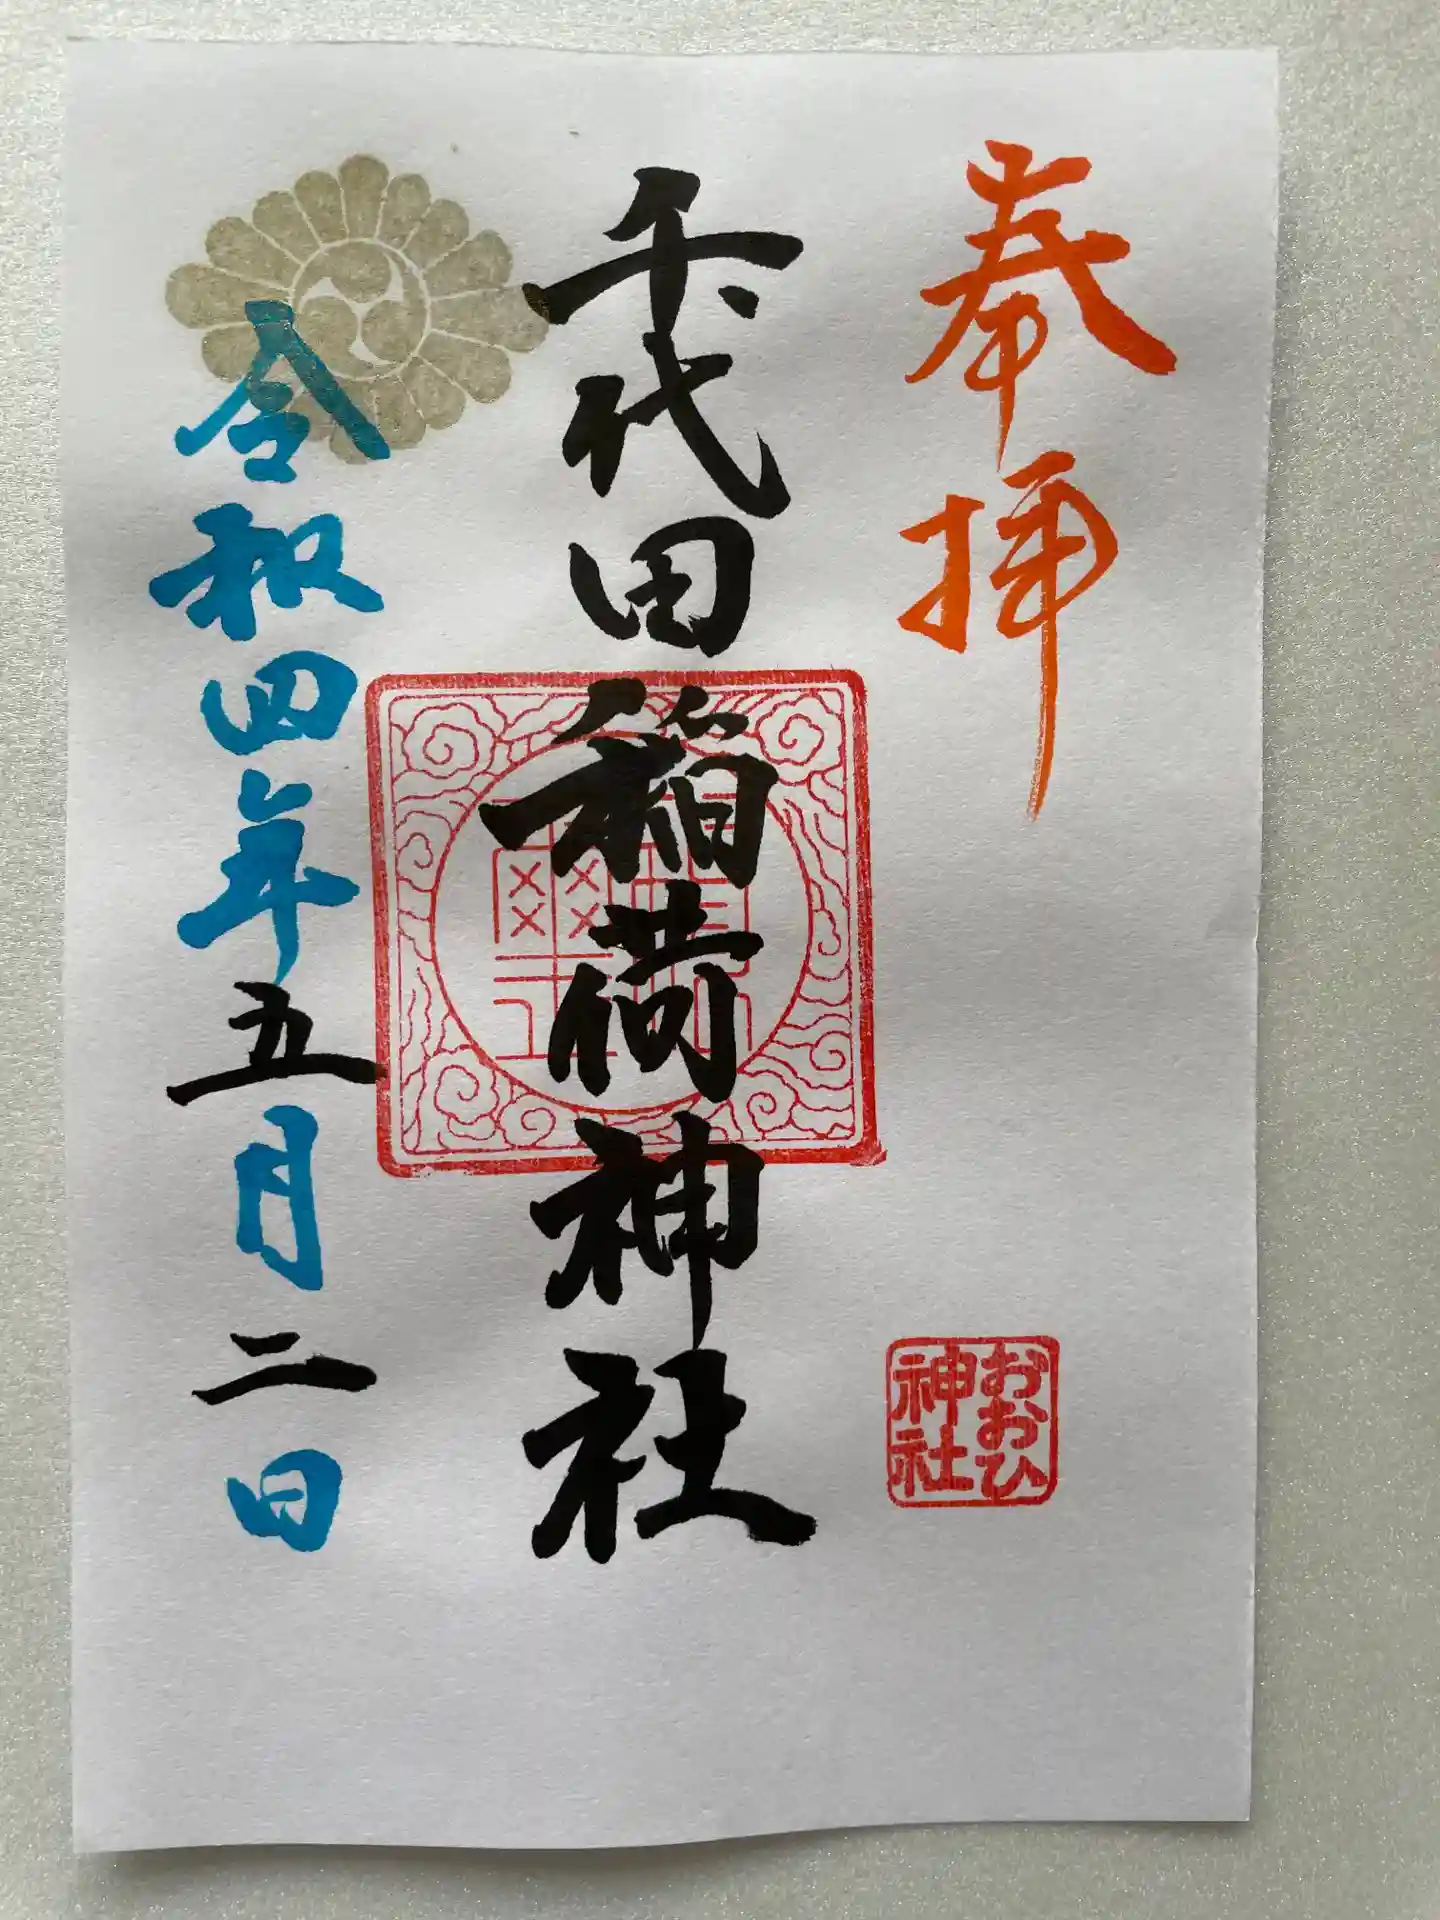 奉拝
おおひ
神社
千代田稲荷神社
令和四年五月二日